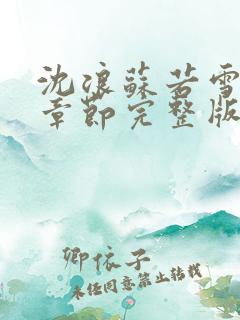 沈浪蘇若雪
章節完整版
卿依子
未经同意禁止转载